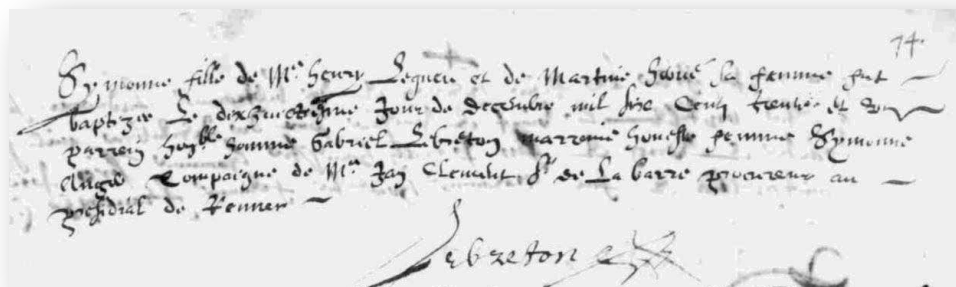 74.
Symonne fille de Me henry Legueu et de Martine sa femme fut
baptizee Le dixhuictiesme Jour de decembre mil six Centz trente et
parrein honble homme Gabriel Lebreton marraine honeste femme Symonne
Compaigne de Me Jan Clemant Sr de La barre procureur au
presidial de Rennes
Lebreton